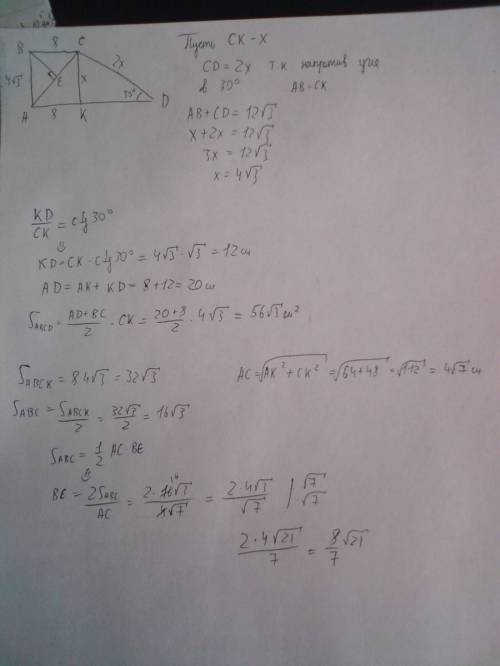 B 8 C
4√3 E x 2x
30°
A 8 K D
Пусть CK - x
CD = 2x т.к напротив угла
в 30° AB = CK
AB + CD = 12√3
x + 2x = 12√3
3x = 12√3
x = 4√3
KD/CK = ctg 30°
⇓
KD = CK · ctg 30° = 4√3 · √3 = 12 см
AD = AK + KD = 8 + 12 = 20 см
S_ABCD = (AD + BC)/2 · CK = (20 + 8)/2 · 4√3 = 56√3 см²
S_ABCK = 8 4√3 = 32√3
AC = √(AK² + CK²) = √(64 + 48) = √112 = 4√7 см
S_ABC = S_ABCK/2 = 32√3/2 = 16√3
S_ABC = 1/2 AC · BE
⇓
BE = 2S_ABC/AC = 2 · 16√3/4√7 = 2 · 4√3/√7 | √7/·√7
2 · 4√21/7 = 8/7 √21